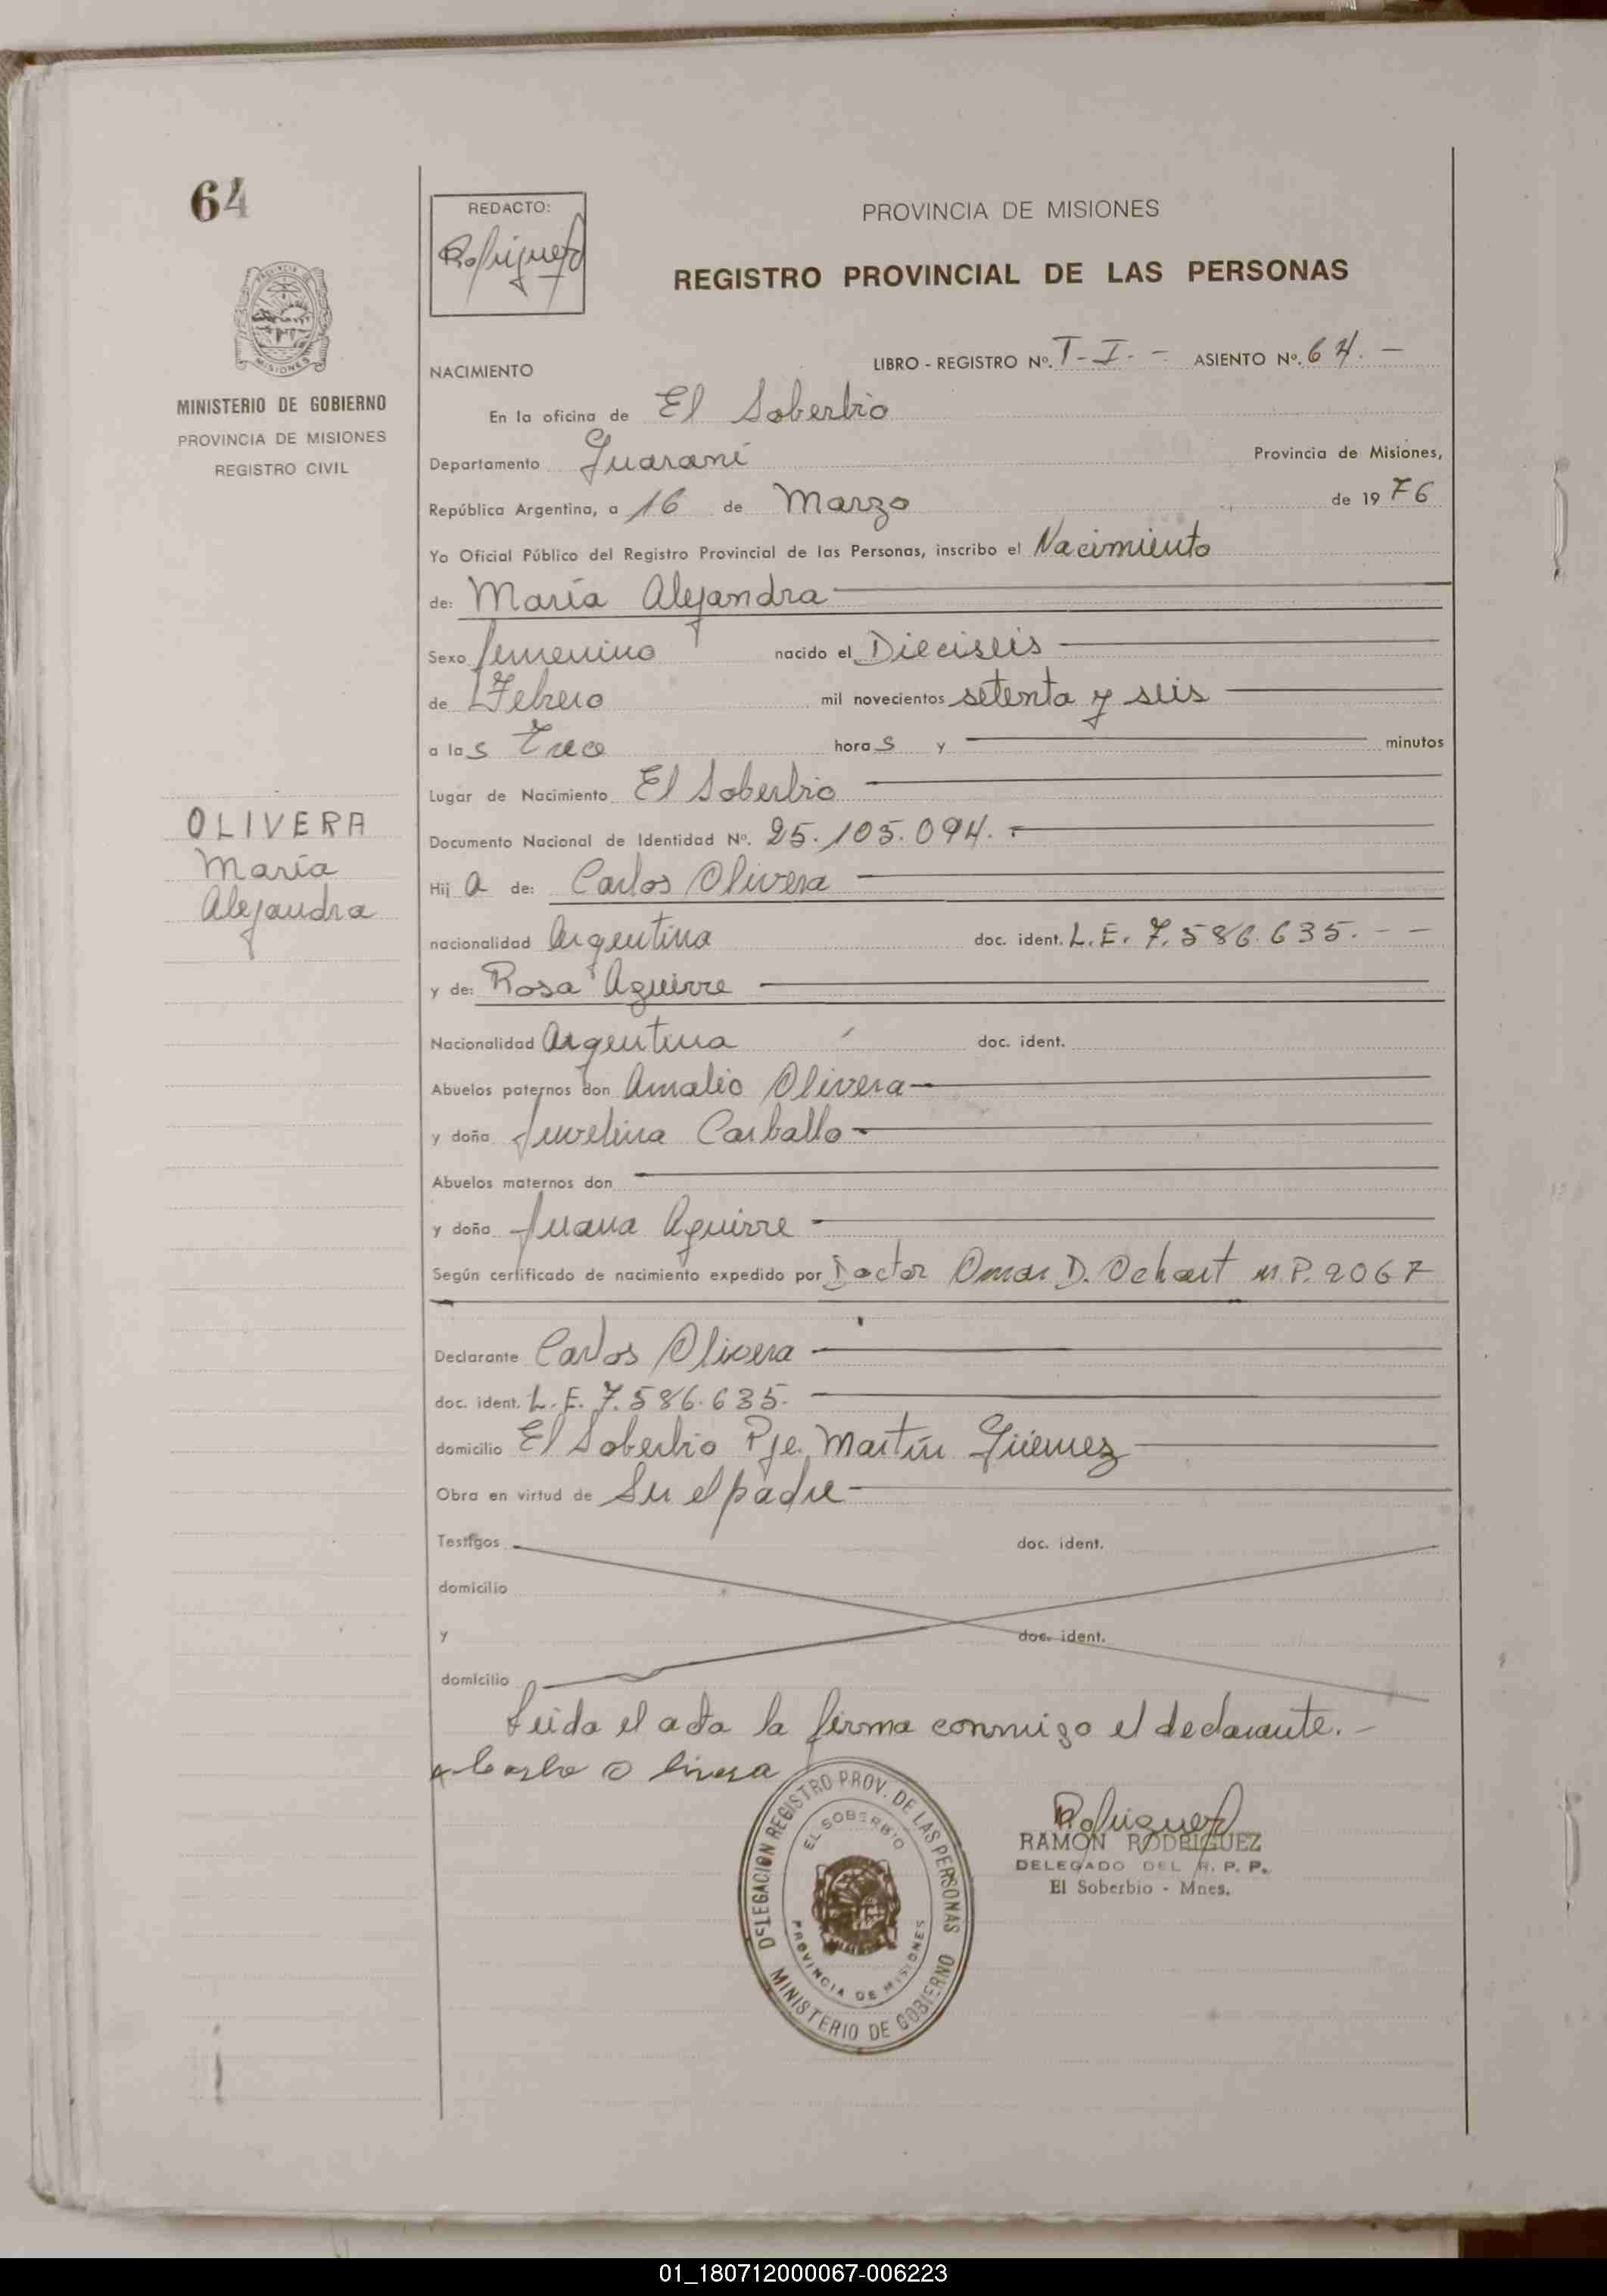 64
REDACTO:
Rodriguez
PROVINCIA DE MISIONES
REGISTRO PROVINCIAL DE LAS PERSONAS
MISIONES
MINISTERIO DE GOBIERNO
PROVINCIA DE MISIONES
REGISTRO CIVIL
NACIMIENTO
LIBRO - REGISTRO Nº. T-I. - ASIENTO Nº. 64. -
En la oficina de El Soberbio
Departamento Guaraní Provincia de Misiones,
República Argentina, a 16 de Marzo de 1976
Yo Oficial Público del Registro Provincial de las Personas, inscribo el Nacimiento
de: María Alejandra
Sexo femenino nacido el Dieciseis
de Febrero mil novecientos setenta y seis
a las Trece horas y minutos
Lugar de Nacimiento El Soberbio
OLIVERA
María
Alejandra
Documento Nacional de Identidad Nº. 25.105.094.
Hija de: Carlos Olivera
nacionalidad Argentina doc. ident. L.E. 7.586.635. - -
y de: Rosa Aguirre
Nacionalidad Argentina doc. ident.
Abuelos paternos don Amalio Olivera
y doña Juvelina Carballo
Abuelos maternos don
y doña Juana Aguirre
Según certificado de nacimiento expedido por Doctor Omar D. Ochart M.P. 2067
Declarante Carlos Olivera
doc. ident. L.E. 7.586.635.
domicilio El Soberbio Pje. Martín Güemez
Obra en virtud de Su el padre
Testigos doc. ident.
domicilio
y doc. ident.
domicilio
Leida el acta la firma conmigo el declarante. -
Olivera
Rodriguez
RAMON RODRIGUEZ
DELEGADO DEL R. P. P.
El Soberbio - Mnes.
DELEGACION REGISTRO PROV. DE LAS PERSONAS
EL SOBERBIO
PROVINCIA DE MISIONES
MINISTERIO DE GOBIERNO
01_180712000067-006223